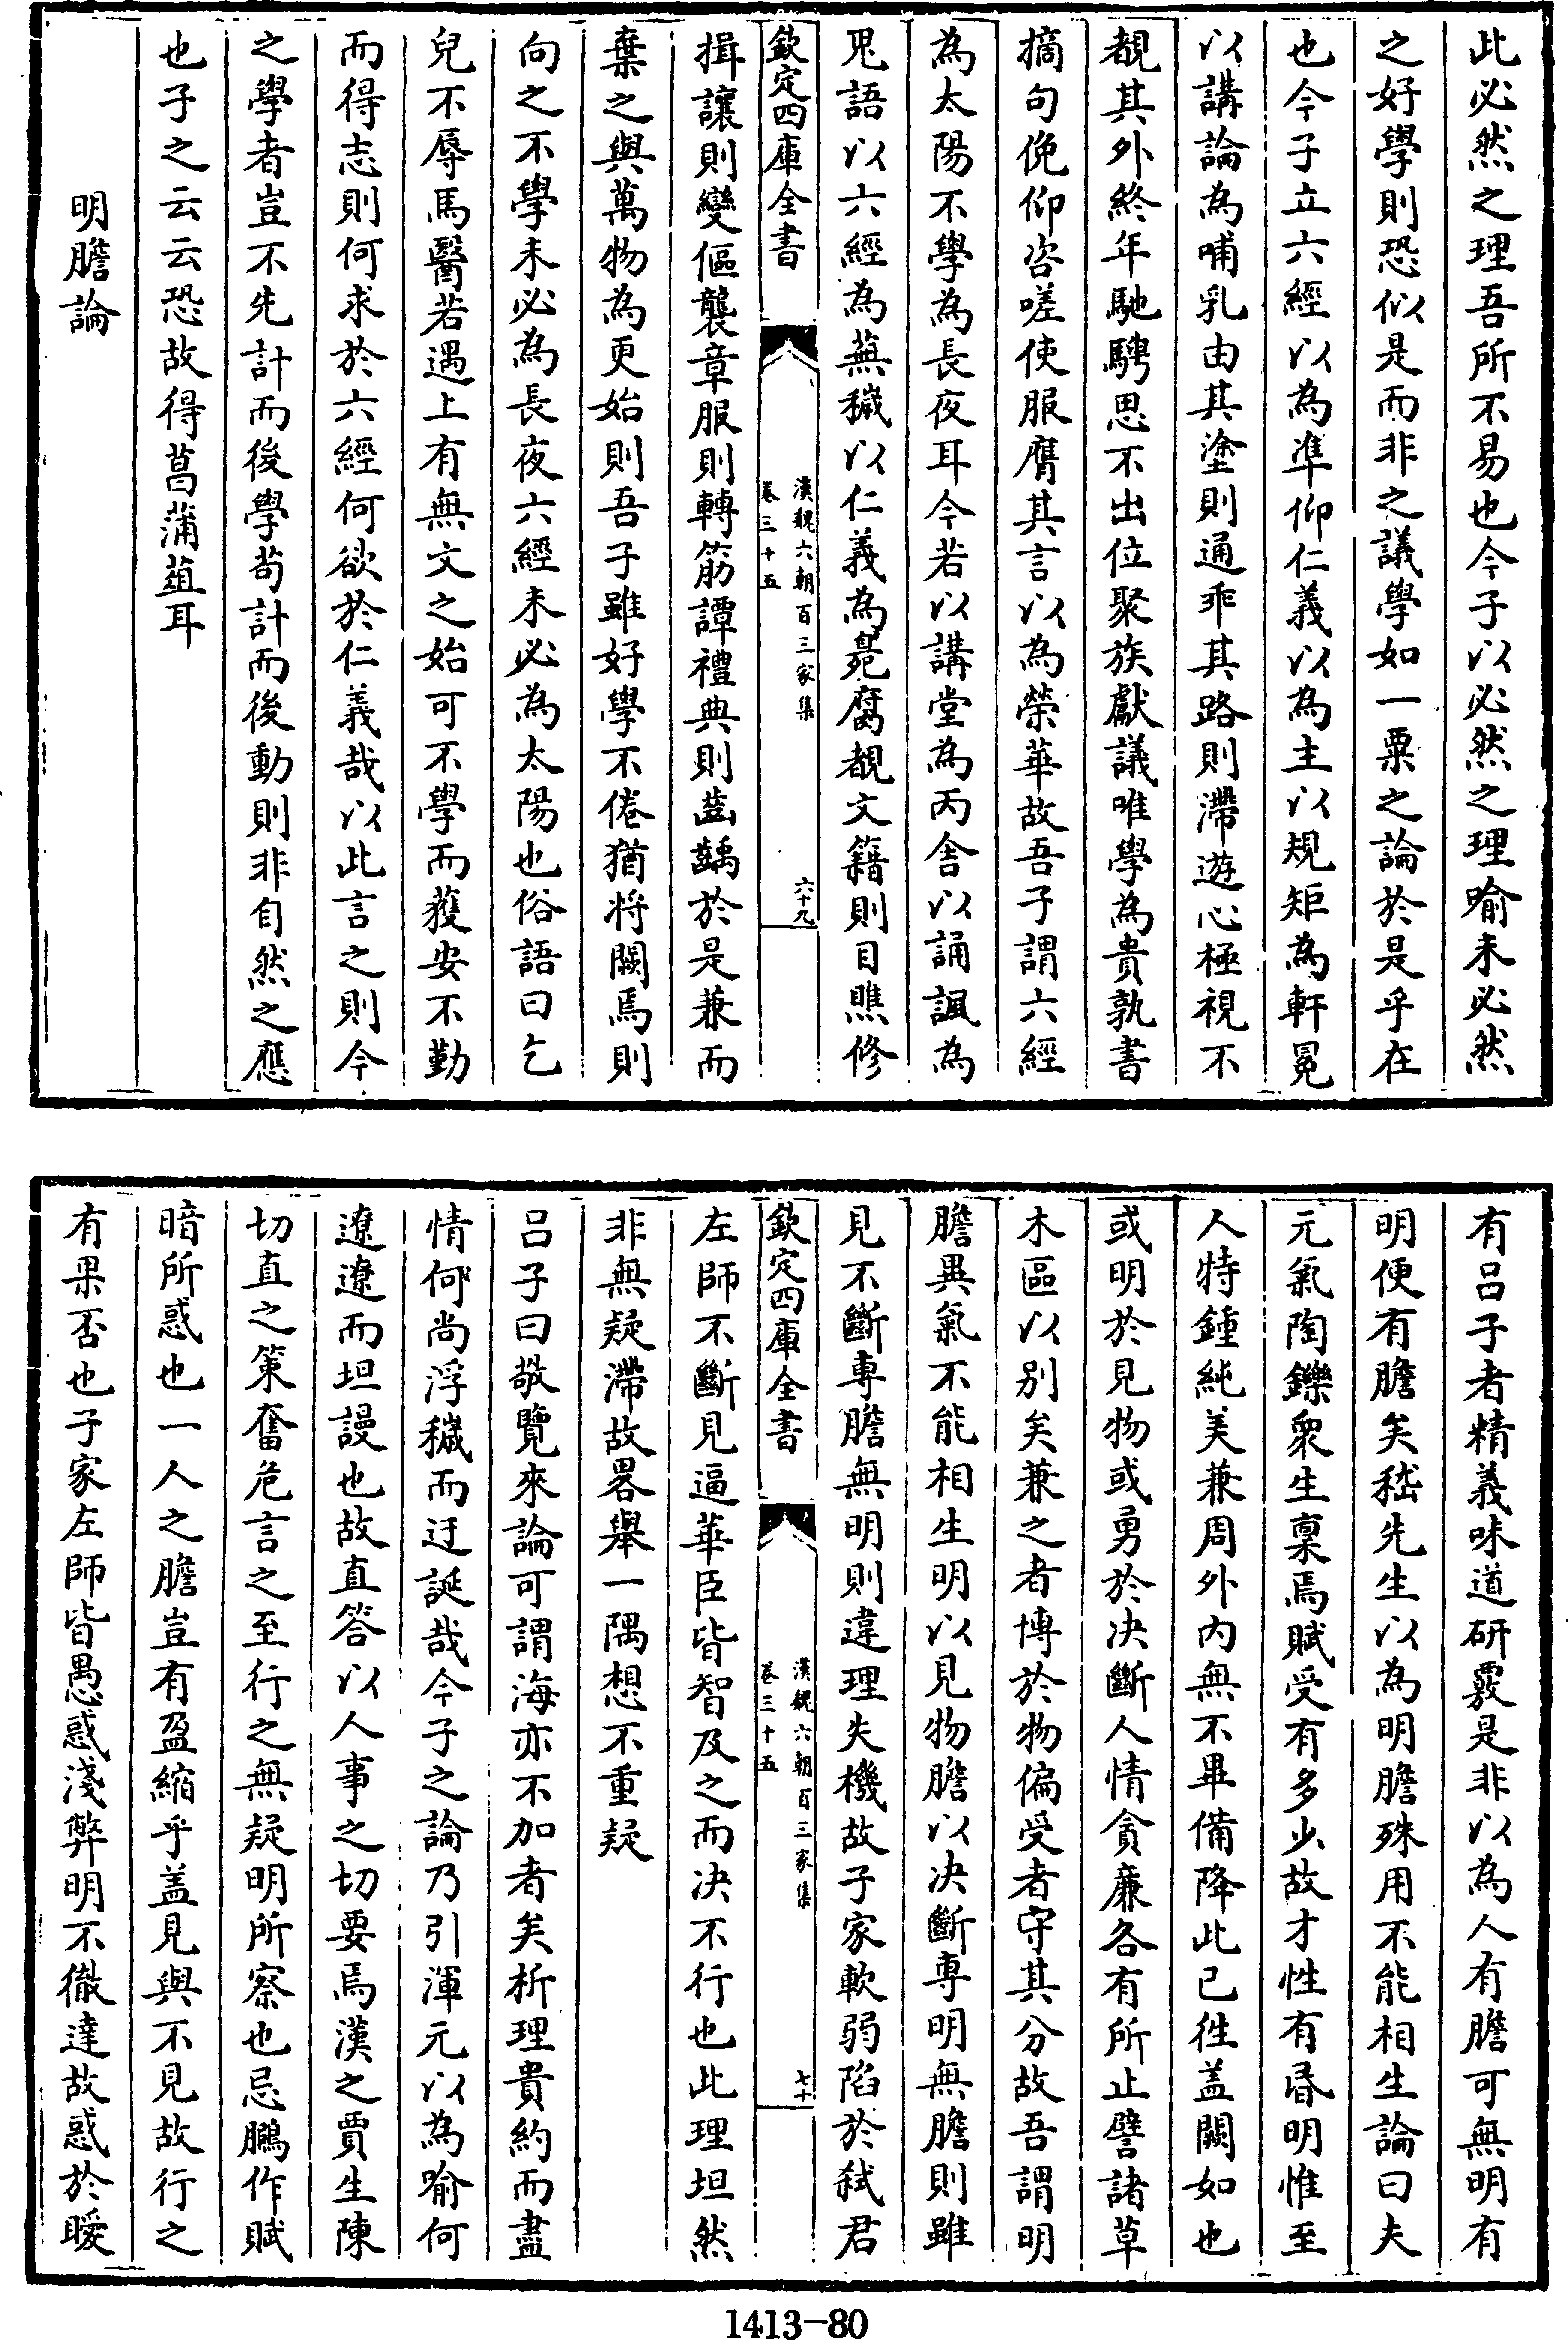 此必然之理吾所不易也今子以必然之理喻未必然
之好學則恐似是而非之議學如一粟之論於是乎在
也今子立六經以為準仰仁義以為主以規矩為軒冕
以講論為哺乳由其塗則通乖其路則滯遊心極視不
覩其外終年馳騁思不出位聚族獻議唯學為貴執書
摘句俛仰咨嗟使服膺其言以為榮華故吾子謂六經
為太陽不學為長夜耳今若以講堂為丙舍以誦諷為
鬼語以六經為蕪穢以仁義為臭腐覩文籍則目瞧修
欽定四庫全書
漢魏六朝百三家集
卷三十五
六十九
揖讓則變傴襲章服則轉筋譚禮典則齒齲於是兼而
棄之與萬物為更始則吾子雖好學不倦猶將闕焉則
向之不學未必為長夜六經未必為太陽也俗語曰乞
兒不辱馬醫若遇上有無文之始可不學而獲安不勤
而得志則何求於六經何欲於仁義哉以此言之則今
之學者豈不先計而後學苟計而後動則非自然之應
也子之云云恐故得菖蒲葅耳
明膽論
有呂子者精義味道研覈是非以為人有膽可無明有
明便有膽矣嵇先生以為明膽殊用不能相生論曰夫
元氣陶鑠衆生稟焉賦受有多少故才性有昏明惟至
人特鍾純美兼周外內無不畢備降此已徃盖闕如也
或明於見物或勇於決斷人情貪廉各有所止譬諸草
木區以別矣兼之者博於物偏受者守其分故吾謂明
膽異氣不能相生明以見物膽以決斷專明無膽則雖
見不斷專膽無明則違理失機故子家軟弱陷於弑君
欽定四庫全書
漢魏六朝百三家集
卷三十五
七十
左師不斷見逼華臣皆智及之而決不行也此理坦然
非無疑滯故畧舉一隅想不重疑
呂子曰敬覽來論可謂海亦不加者矣析理貴約而盡
情何尚浮穢而迂誕哉今子之論乃引渾元以為喻何
遼遼而坦謾也故直答以人事之切要焉漢之賈生陳
切直之策奮危言之至行之無疑明所察也忌鵩作賦
暗所惑也一人之膽豈有盈縮乎盖見與不見故行之
有果否也子家左師皆愚惑淺弊明不徹達故惑於曖
1413-80